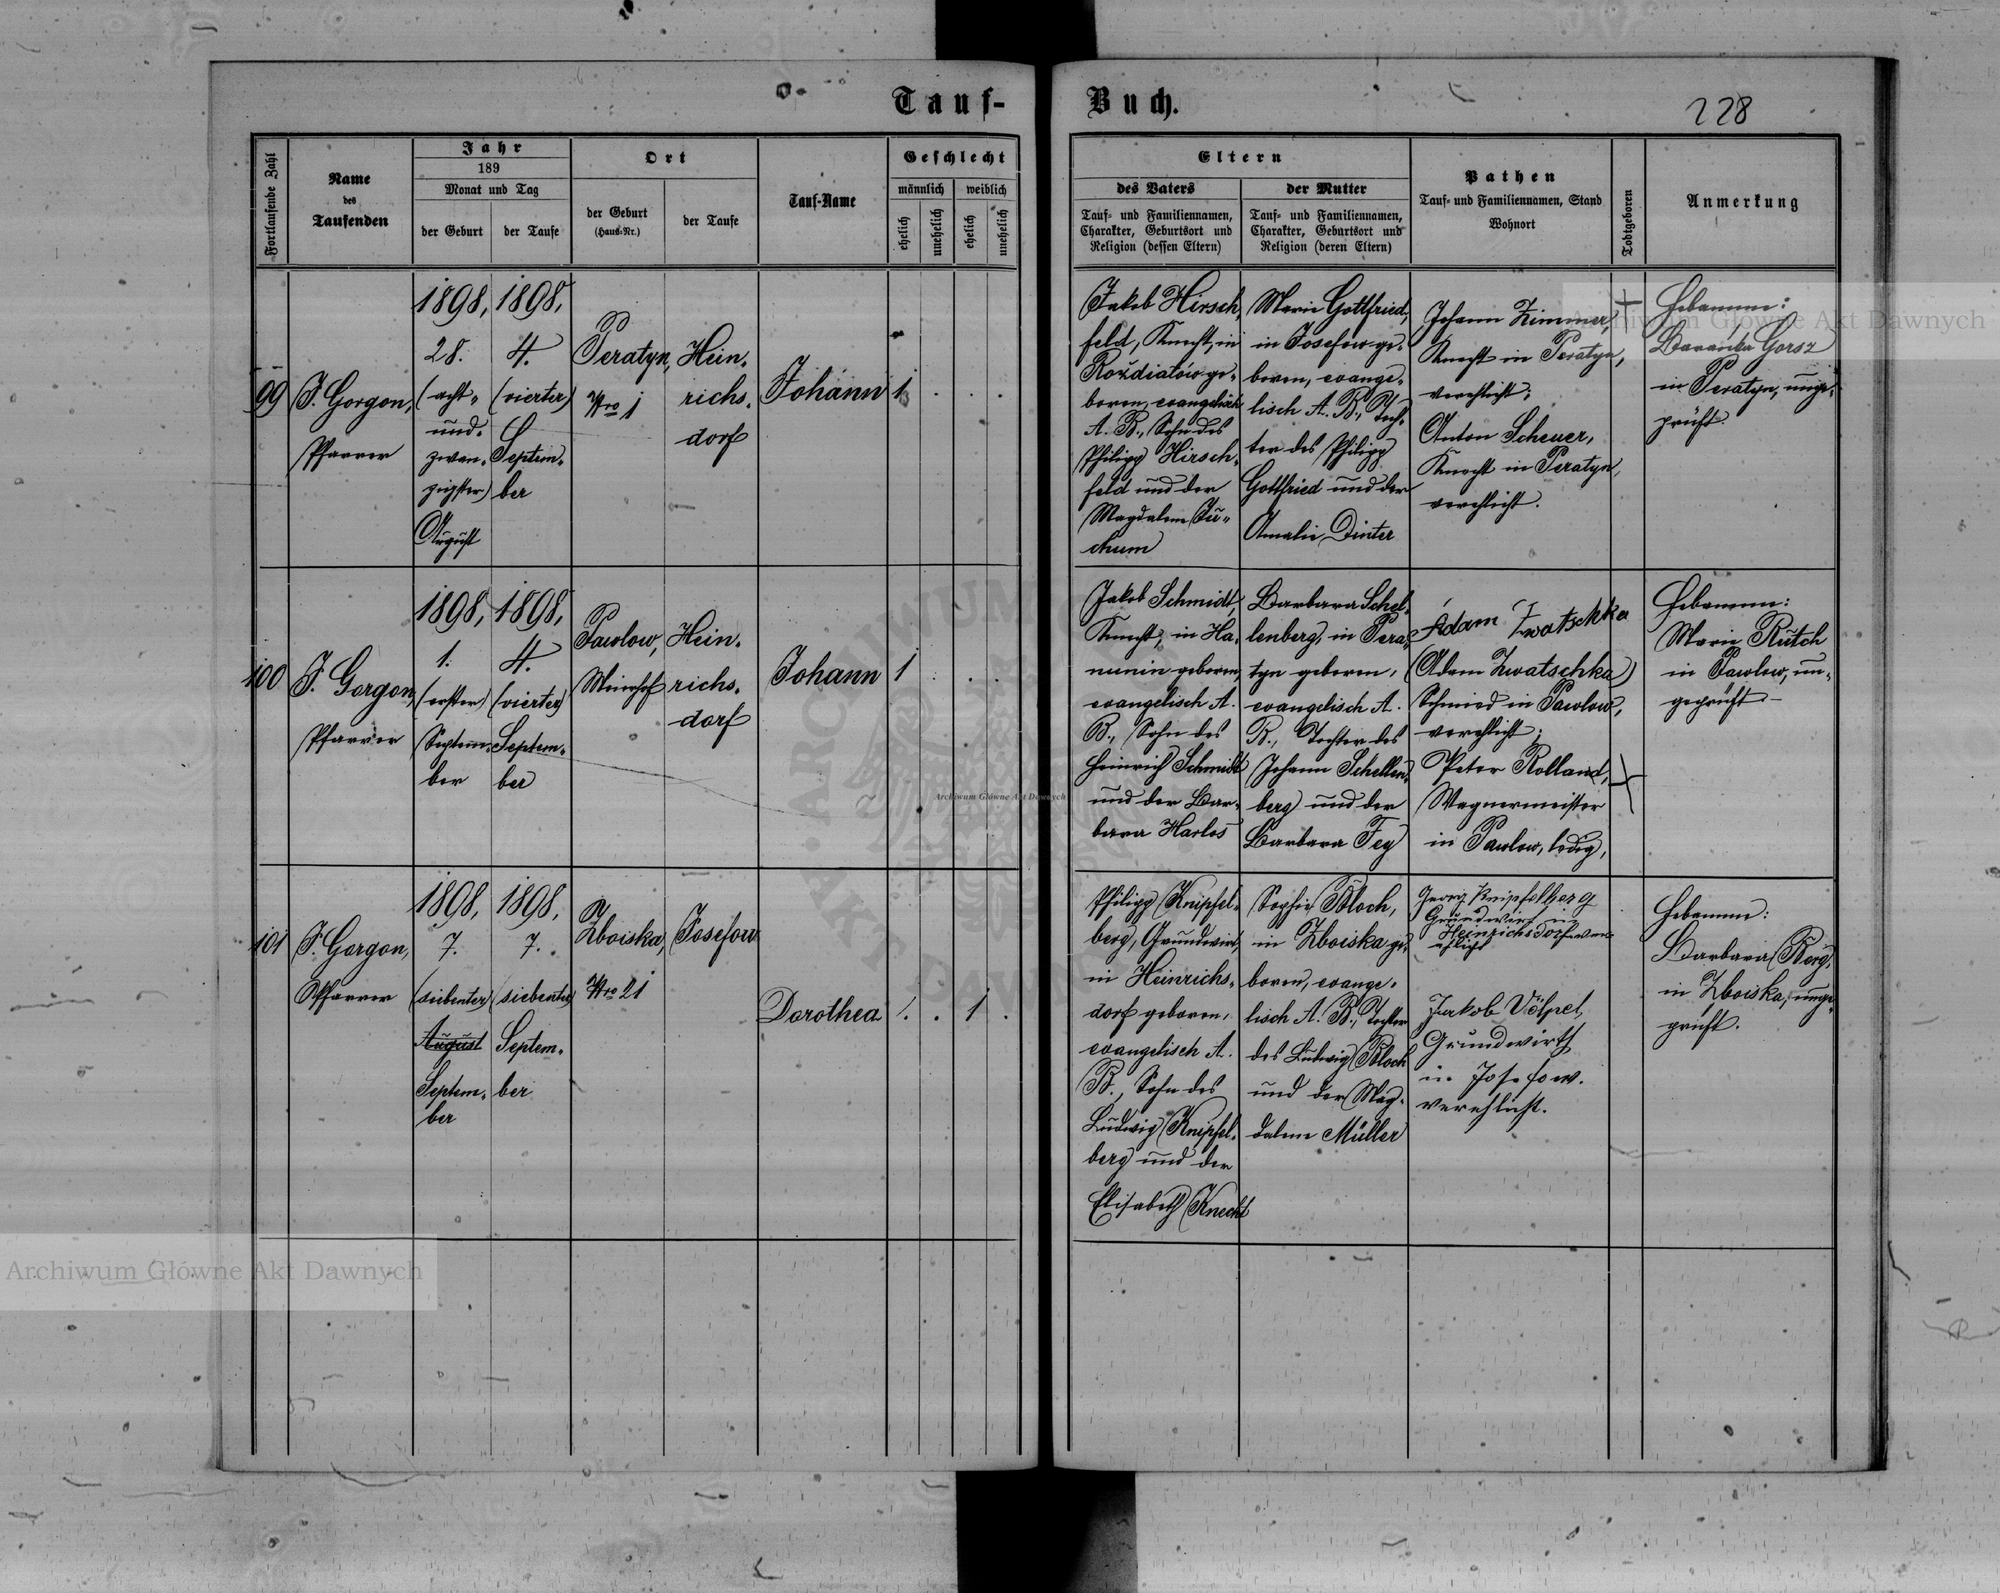 Tauf-
Buch.
228
Fortlaufende Zahl
Name
des
Taufenden
Jahr
189
Monat und Tag
der Geburt
der Taufe
Ort
der Geburt
(Haus-Nr.)
der Taufe
Tauf-Name
Geschlecht
männlich
weiblich
ehelich
unehelich
ehelich
unehelich
Eltern
des Vaters
Tauf- und Familiennamen,
Charakter, Geburtsort und
Religion (dessen Eltern)
der Mutter
Tauf- und Familiennamen,
Charakter, Geburtsort und
Religion (deren Eltern)
Pathen
Tauf- und Familiennamen, Stand
Wohnort
Todtgeboren
Anmerkung
99
J. Gorgon,
Pfarrer
1898,
28.
(acht-
und-
zwan-
zigster)
August
1898,
4.
(vierter)
Septem-
ber
Peratyn,
Nro 1
Hein-
richs-
dorf
Johann
1
Jakob Hirsch-
feld, Knecht, in
Roźdiatów ge-
boren, evangelisch
A. B., Sohn des
Philipp Hirsch-
feld und der
Magdalena Ju-
chum
Marie Gottfried,
in Josefow ge-
boren, evange-
lisch A. B., Toch-
ter des Philipp
Gottfried und der
Amalie Dinter
Johann Zimmer,
Knecht in Peratyn,
verehlicht;
Anton Scheuer,
Knecht in Peratyn,
verehlicht.
Hebamme:
Gorsz
in Peratyn, unge-
prüft.
100
J. Gorgon,
Pfarrer
1898,
1.
(erster)
Septem-
ber
1898,
4.
(vierter)
Septem-
ber
Pawlow,
Meierhof
Hein-
richs-
dorf
Johann
1
Jakob Schmidt,
Knecht, in Ha-
nunin geboren,
evangelisch A.
B., Sohn des
Heinrich Schmidt
und der Bar-
bara Harlos
Barbara Schel-
lenberg, in Pera-
tyn geboren,
evangelisch A.
B., Tochter des
Johann Schellen-
berg und der
Barbara Fey
Adam Zwatschka
(Adam Zwatschka)
Schmied in Pawlow,
verehlicht;
Peter Rolland,
Wagnermeister
in Pawlow, ledig,
Hebamme:
Marie Rutch
in Pawlow, un-
geprüft
101
J. Gorgon,
Pfarrer
1898,
7.
(siebenter)
August
Septem-
ber
1898,
7.
(siebenter)
Septem-
ber
Zboiska,
Nro 21
Josefow
Dorothea
1
Philipp Knipfel-
berg, Grundwirt,
in Heinrichs-
dorf geboren,
evangelisch A.
B., Sohn des
Ludwig Knipfel-
berg und der
Elisabeth Knecht
Sophie Bloch,
in Zboiska ge-
boren, evange-
lisch A. B., Tochter
des Ludwig Bloch
und der Mag-
dalena Müller
Georg Knipfelberg
Grundwirt in
Heinrichsdorf ver-
ehlicht
Jakob Völpel,
Grundwirth
in Josefow.
verehlicht.
Hebamme:
Barbara Berg,
in Zboiska, unge-
prüft.
Archiwum Główne Akt Dawnych
Archiwum Główne Akt Dawnych
Archiwum Główne Akt Dawnych